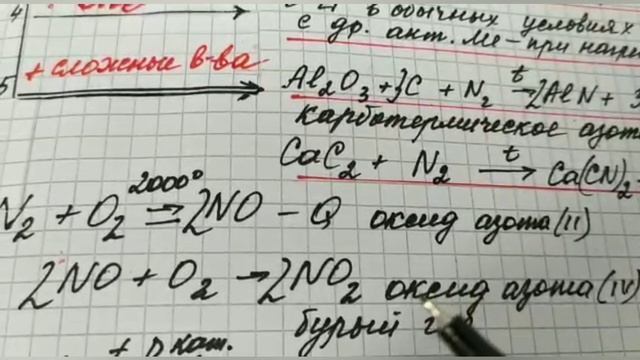 4
в обычных условиях
с др. акт. Ме - при нагр
5 + сложные в-ва
Al₂O₃ + 3C + N₂ →t 2AlN + 3
Карботермическое азот
CaC₂ + N₂ →t Ca(CN)₂
N₂ + O₂ 2000° ⇌ 2NO - Q оксид азота (II)
2NO + O₂ → 2NO₂ оксид азота (IV)
бурый г
+ р кат.